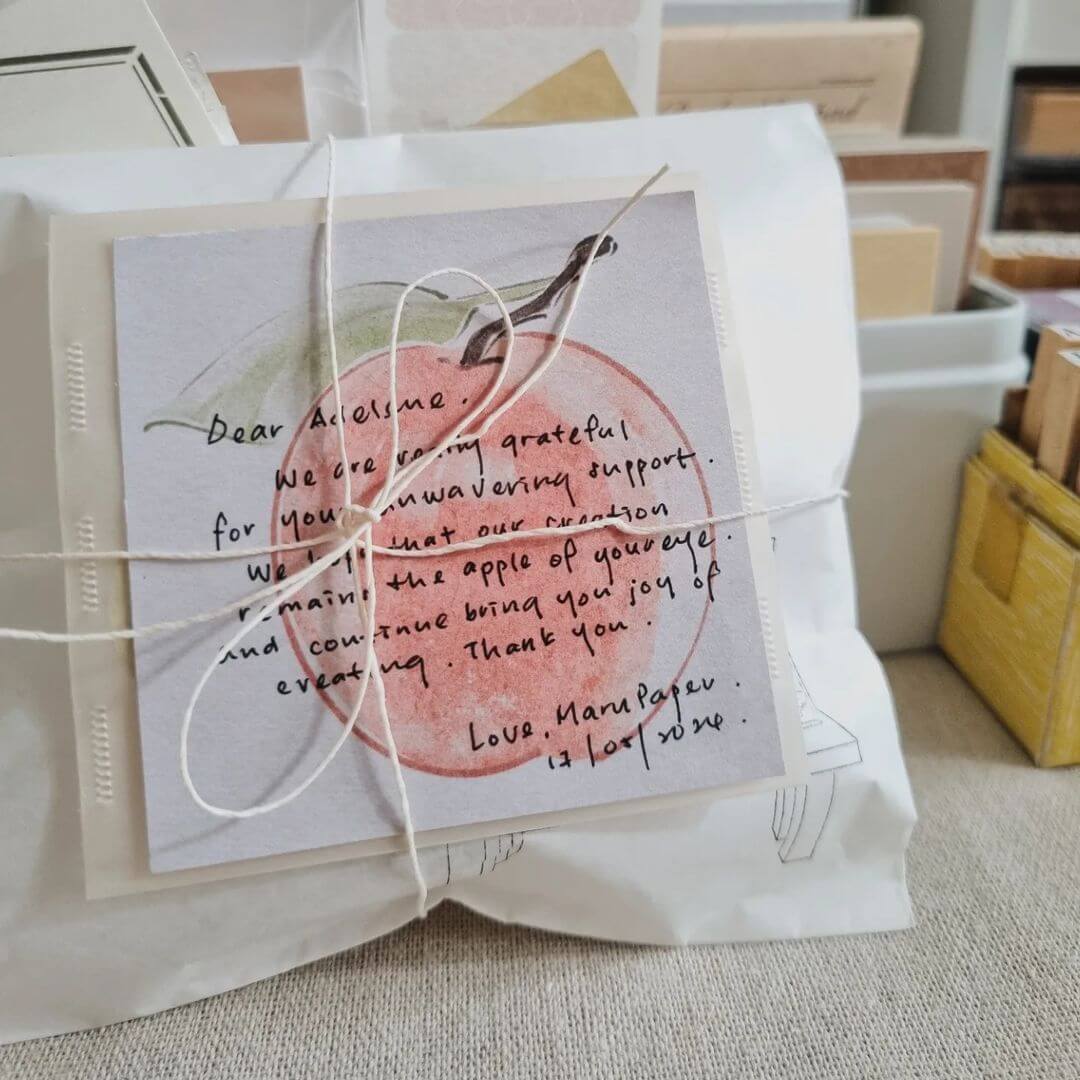 Dear Adelsne.
We are really grateful
for your unwavering support.
We hope that our creation
remains the apple of your eye.
and continue bring you joy of
creating. Thank you.
Love, MaruPaper.
17/05/2024.